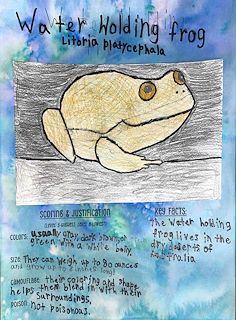 Water Holding frog
Litoria platycephala
SCORING & JUSTIFICATION
COLORS: usually gray, dark brown, or
green with a white belly
SIZE: They can weigh up to 80 ounces
and grow up to 8 inches long!
CAMOUFLAGE: their coloring and shape
helps them blend in with their
surroundings,
POISON: not poisonous.
KEY FACTS:
the Water holding
frog lives in the
dry deserts of
Australia